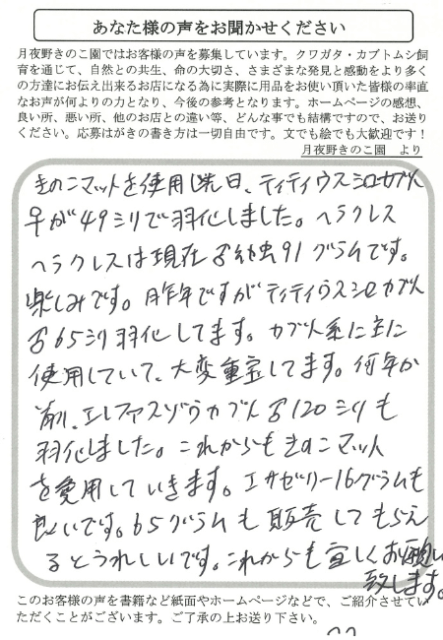 あなた様の声をお聞かせください
月夜野きのこ園ではお客様の声を募集しています。クワガタ・カブトムシ飼
育を通じて、自然との共生、命の大切さ、さまざまな発見と感動をより多く
の方達にお伝え出来るお店になる為に実際に用品をお使い頂いた皆様の率直
なお声が何よりの力となり、今後の参考となります。ホームページの感想、
良い所、悪い所、他のお店との違い等、どんな事でも結構ですので、お送り
ください。応募はがきの書き方は一切自由です。文でも絵でも大歓迎です！
月夜野きのこ園 より
きのこマットを使用し先日、ティティウスシロカブト
♀が49ミリで羽化しました。ヘラクレス
ヘラクレスは現在♂幼虫91グラムです。
楽しみです。昨年ですがティティウスシロカブト
♂65ミリ羽化してます。カブト系に主に
使用していて、大変重宝してます。何年か
前、エレファスゾウカブト♂120ミリも
羽化しました。これからもきのこマット
を愛用していきます。エサゼリー16グラムも
良いです。65グラムも販売してもらえ
るとうれしいです。これからも宜しくお願い
致します。
このお客様の声を書籍など紙面やホームページなどで、ご紹介させてい
ただくことがございます。ご了承の上お送り下さい。